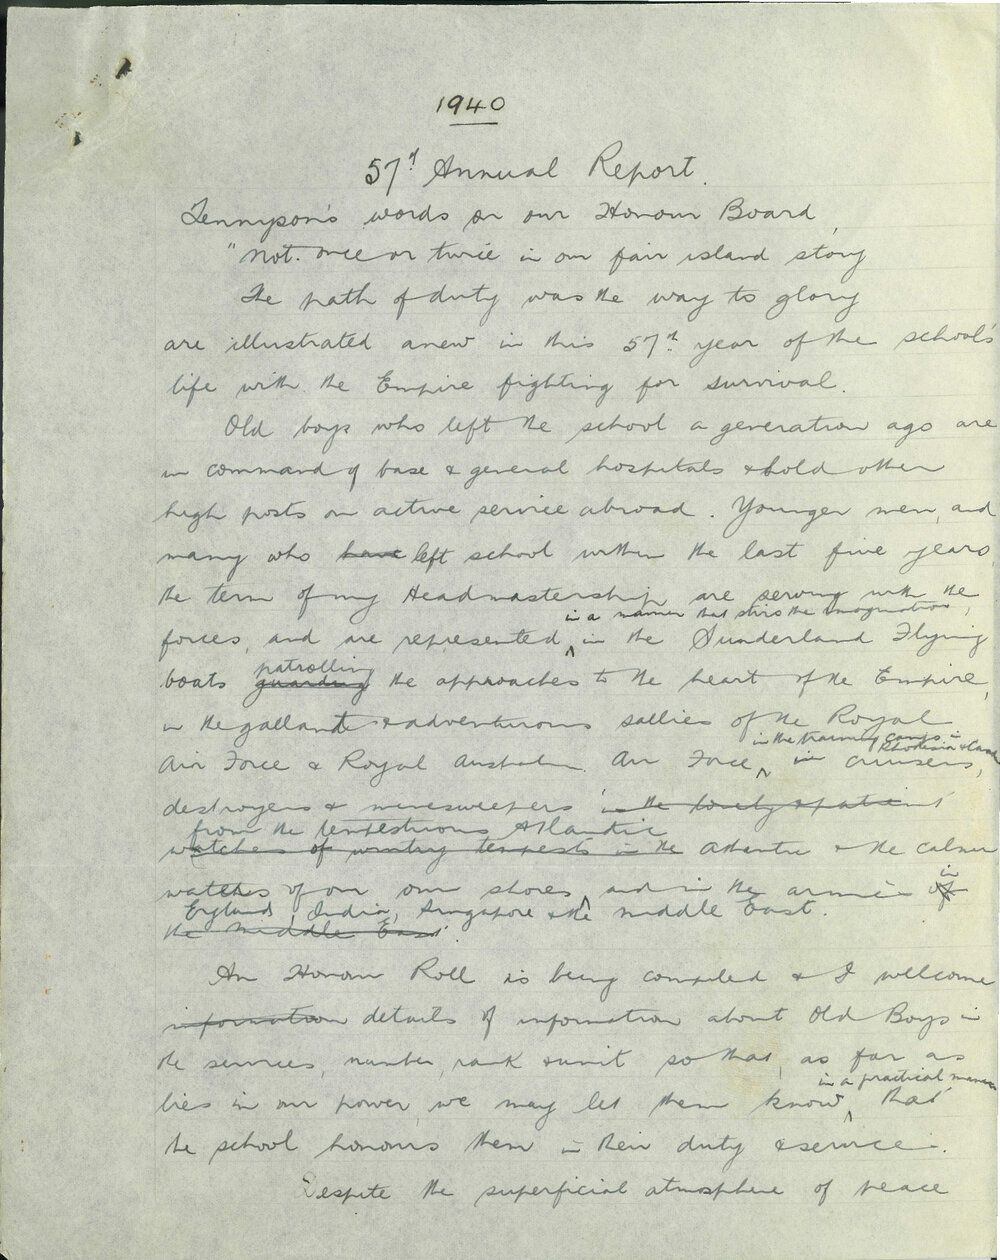 1940
57th Annual Report.
Tennyson's words on our Honour Board,
"Not once or twice in our fair island story
The path of duty was the way to glory
are illustrated anew in this 57th year of the school's
life with the Empire fighting for survival.
Old boys who left the school a generation ago are
in command of base & general hospitals & hold other
high posts on active service abroad. Younger men, and
many who have left school within the last five years,
the term of my Headmastership, are serving with the
in a manner that stirs the imagination,
forces, and are represented, in the Sunderland Flying
patrolling
boats guarding the approaches to the heart of the Empire,
in the gallant & adventurous sallies of the Royal
in the training camps in Rhodesia &
Air Force & Royal Australian Air Force, in cruisers,
destroyers & minesweepers in the lonely & patient
from the tempestuous Atlantic
watches of wintry tempests in the Atlantic & the calmer
in
watches of our own shores, and in the armies of
England, India, Singapore & the Middle East.
the Middle East.
An Honour Roll is being compiled & I welcome
information details of information about Old Boys in
the services, number, rank & unit so that, as far as
in a practical manner
lies in our power, we may let them know, that
the school honours them in their duty & service.
Despite the superficial atmosphere of peace